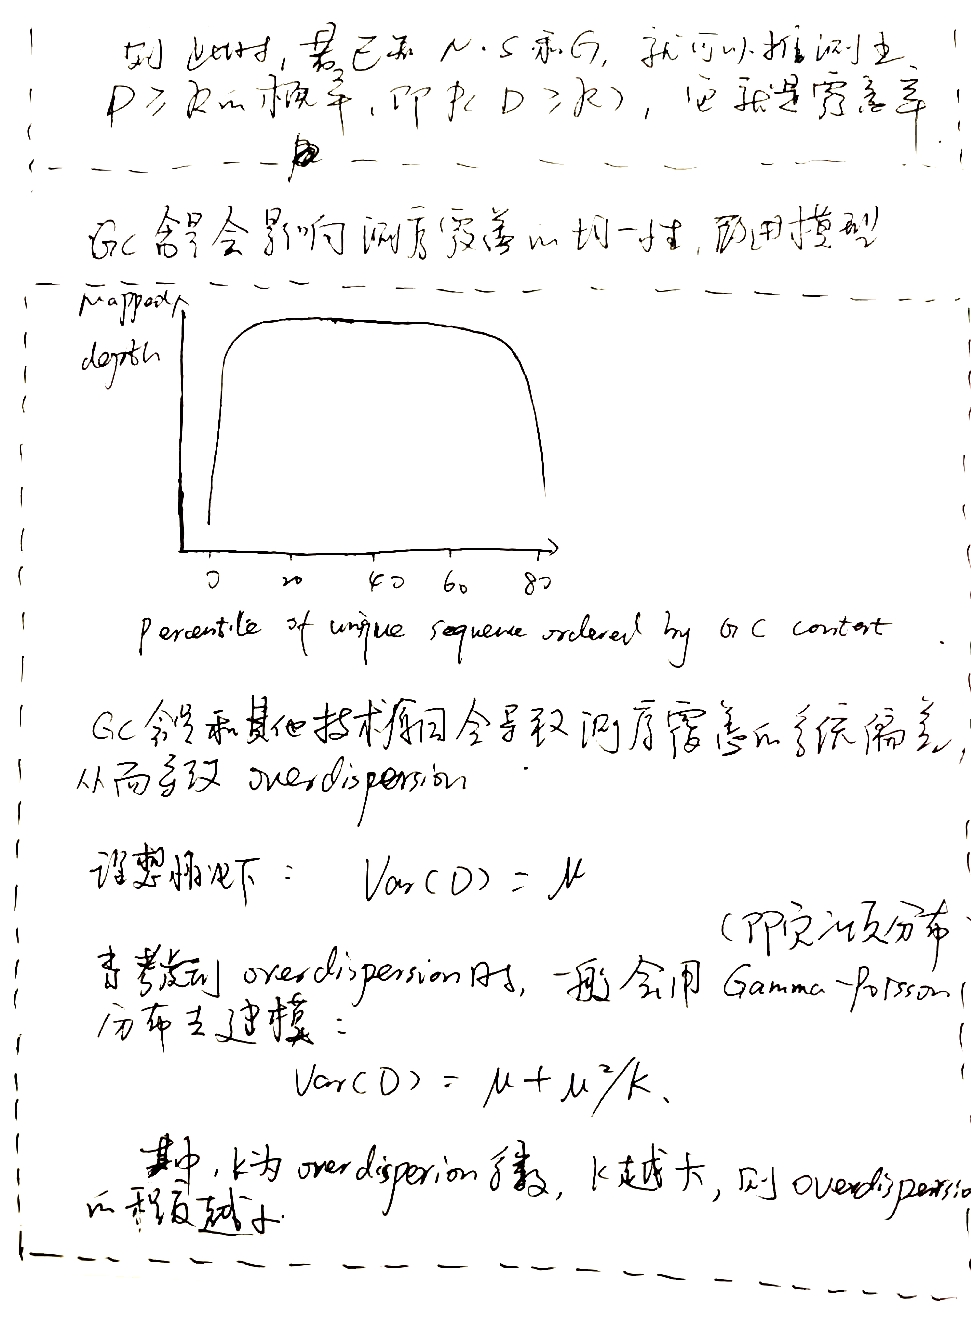 到此时，若已知 N、S和G，就可以推测出
D≥k的概率，即P(D≥k)，也就是覆盖率
GC含量会影响测序覆盖的均一性，即用模型
Mapped
depth
0 20 40 60 80
percentile of unique sequence ordered by GC content
GC含量和其他技术原因会导致测序覆盖的系统偏差，
从而导致 overdispersion
理想情况下： Var(D) = μ
(即负二项分布
当考虑到 overdispersion时，一般会用 Gamma-Poisson
分布去建模：
Var(D) = μ + μ²/k、
其中，k为 overdispersion 系数，k越大，则 overdispersio
的程度越小.